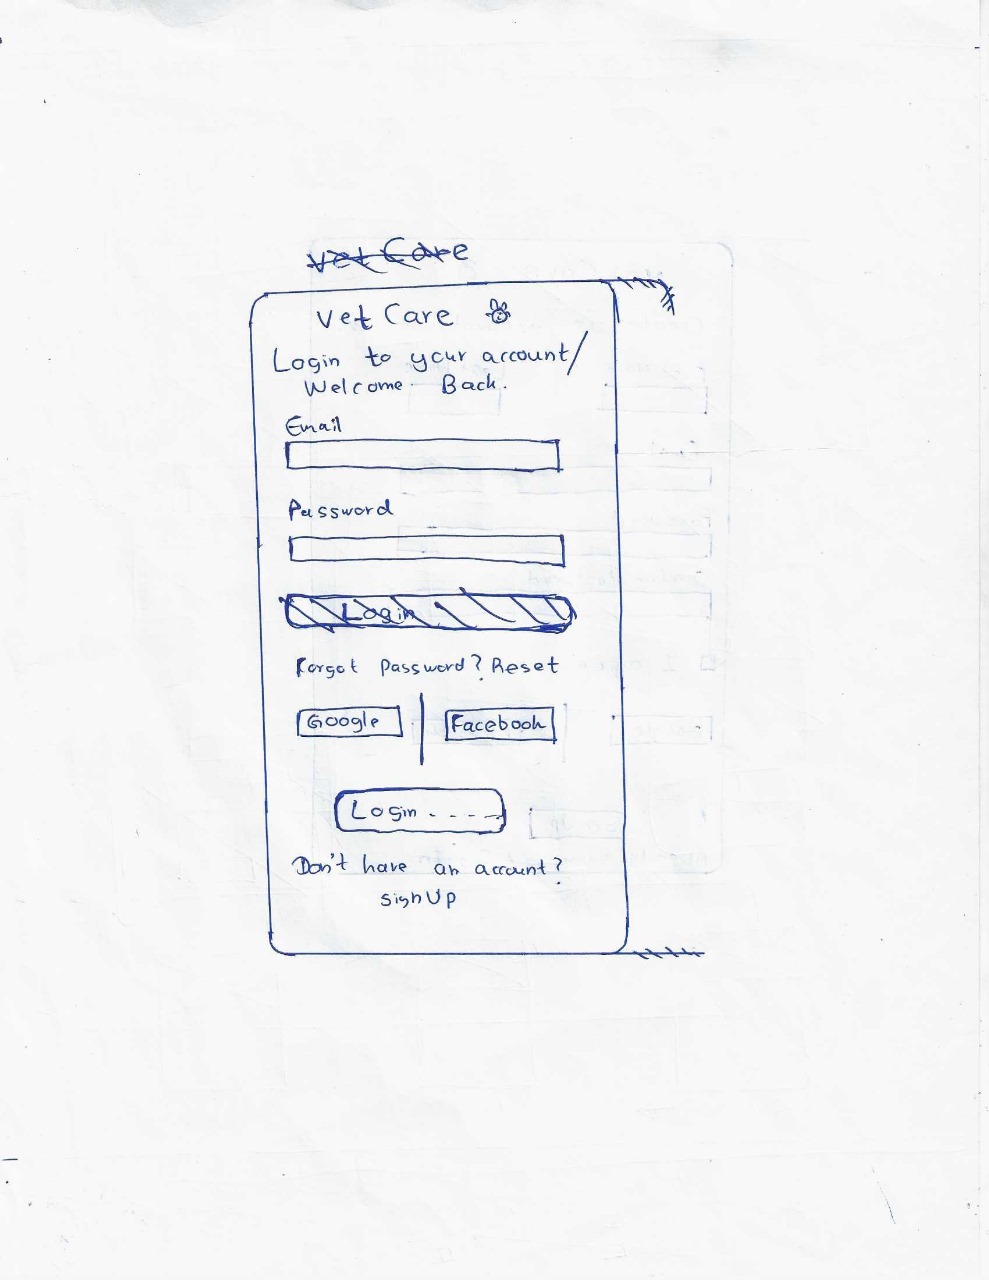 Vet Care
Vet Care
Login to your account/
Welcome Back.
Email
Password
Login
Forgot Password? Reset
Google
Facebook
Login - - - -
Don't have an account?
signUp